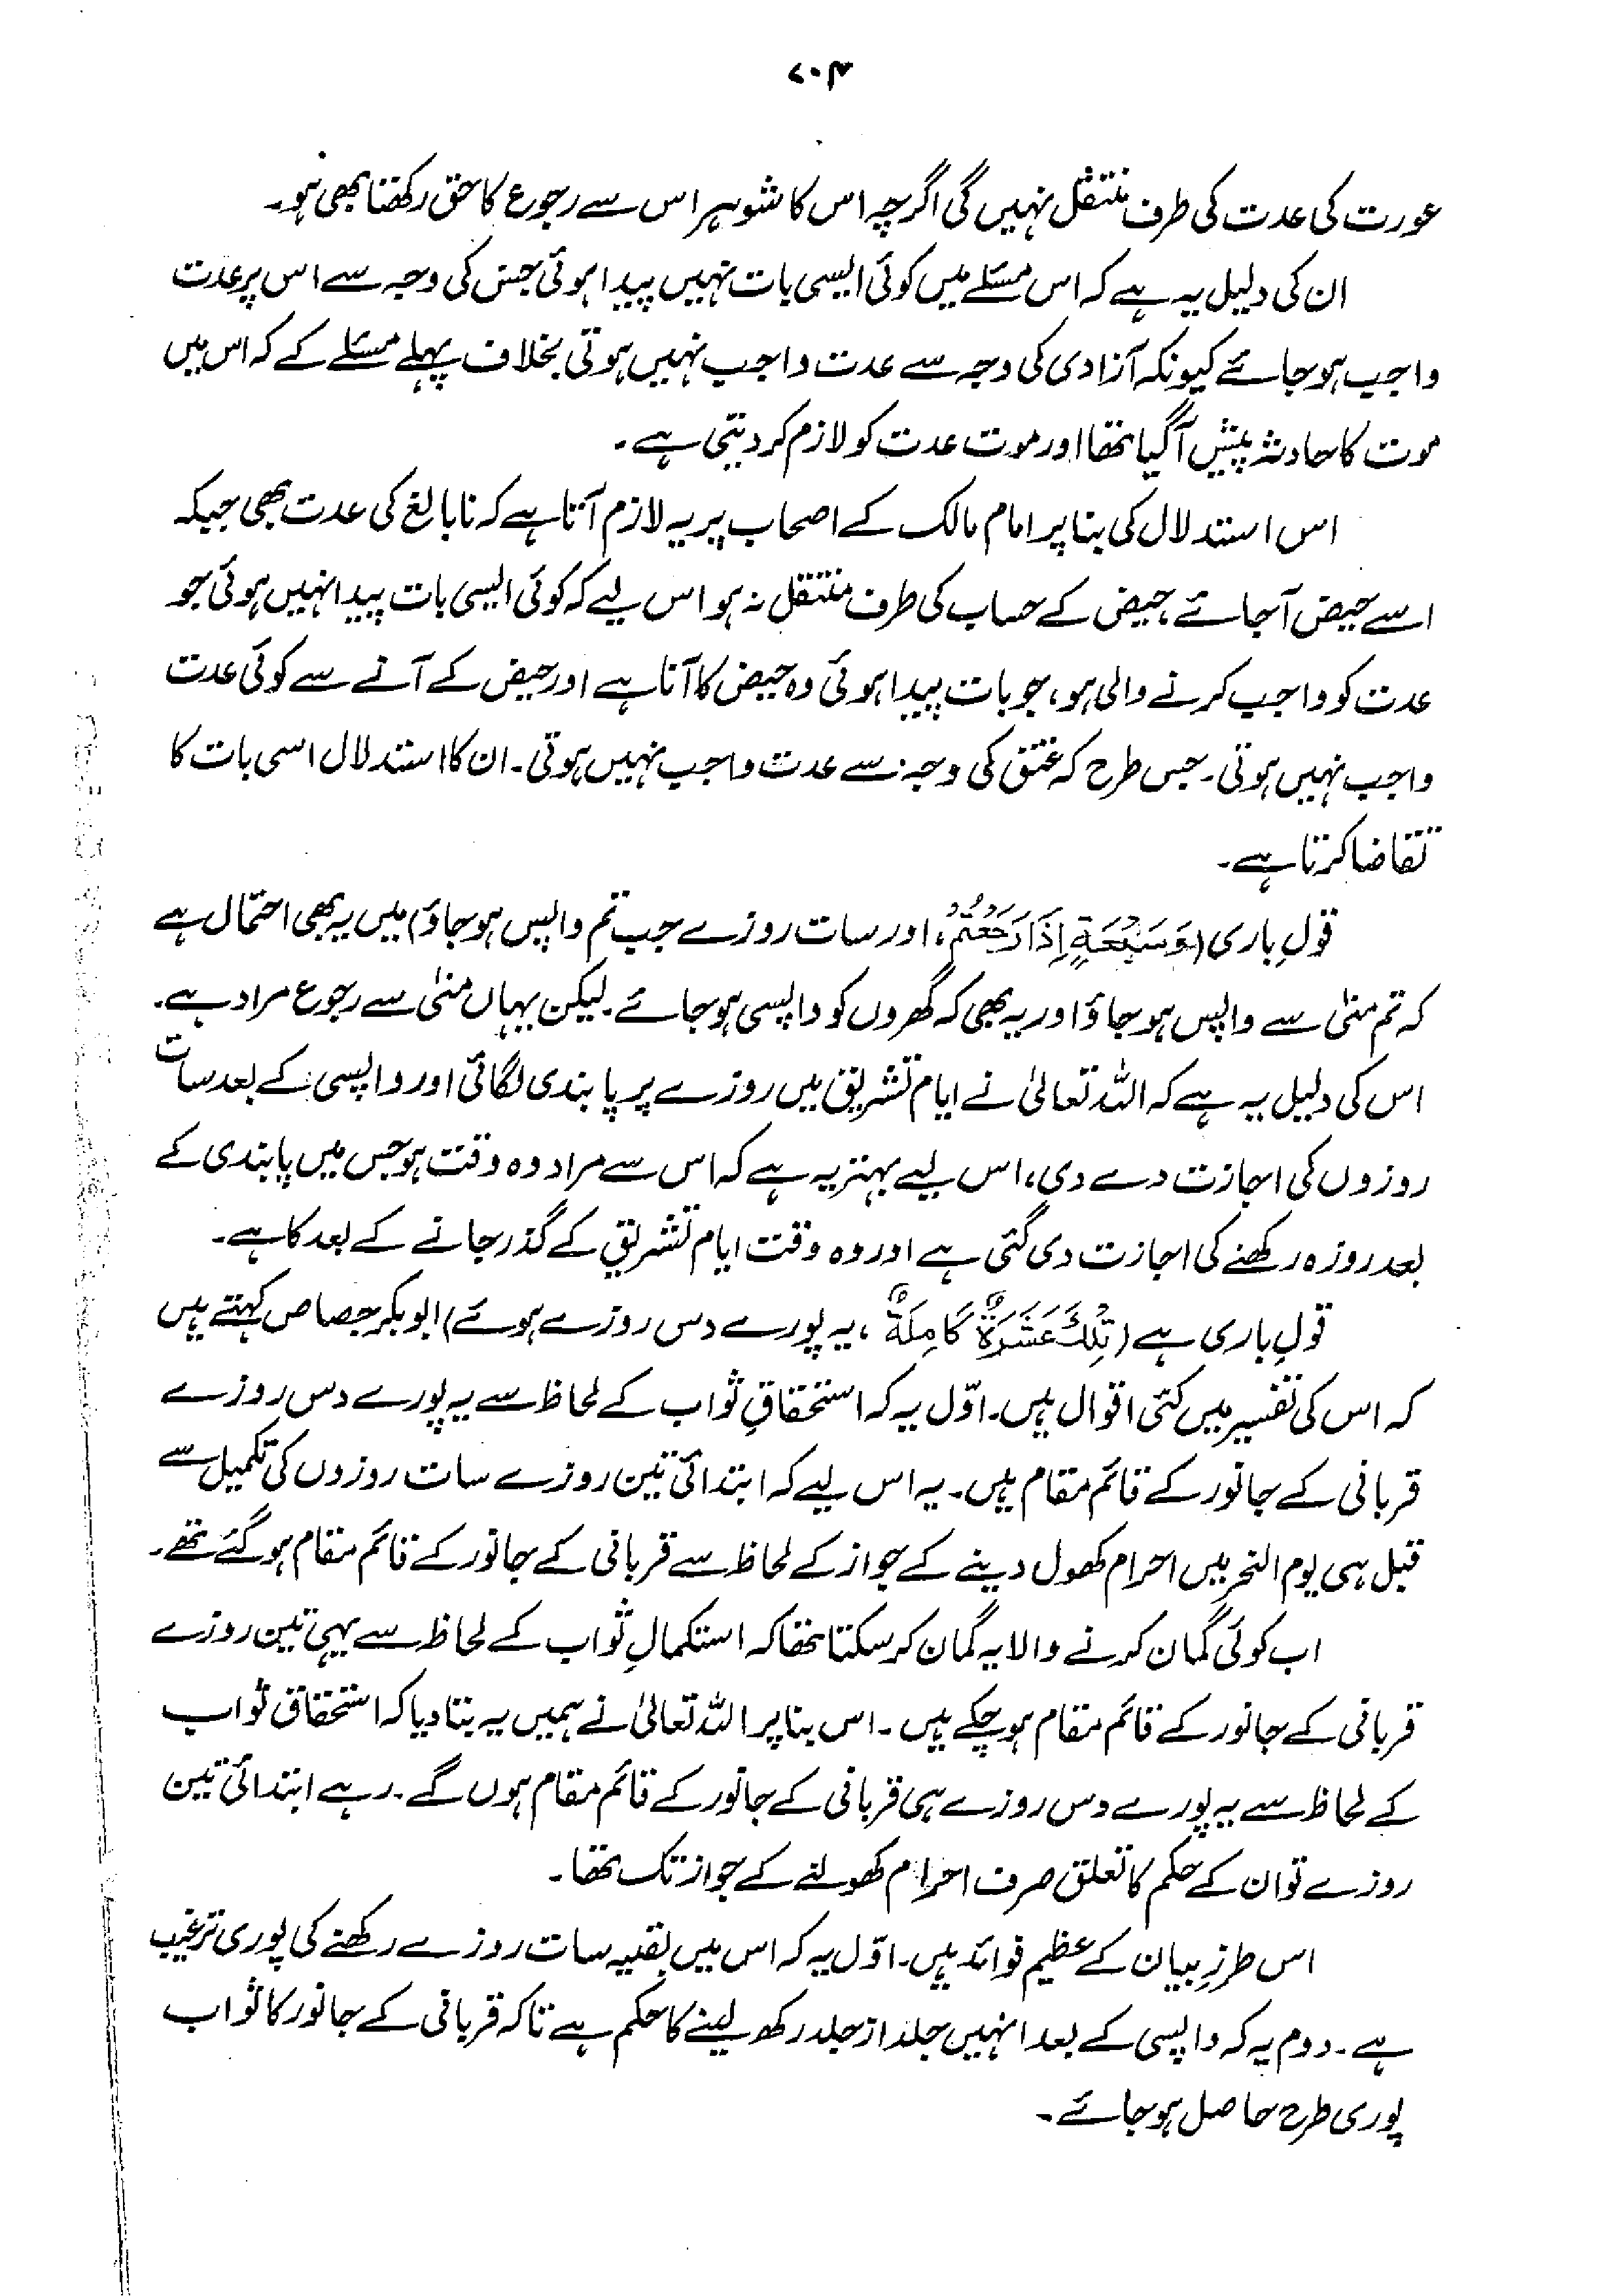 ۷۰۴
عورت کی عدت کی طرف منتقل نہیں گی اگرچہ اس کا شوہر اس سے رجوع کا حق رکھتا بھی ہو۔
ان کی دلیل یہ ہے کہ اس مسئلے میں کوئی ایسی بات نہیں پیدا ہوئی جس کی وجہ سے اس پر عدت
واجب ہو جائے کیونکہ آزادی کی وجہ سے عدت واجب نہیں ہوتی بخلاف پہلے مسئلے کے کہ اس میں
موت کا حادثہ پیش آگیا تھا اور موت عدت کو لازم کر دیتی ہے۔
اس استدلال کی بنا پر امام مالک کے اصحاب پر یہ لازم آتا ہے کہ نابالغ کی عدت بھی جبکہ
اسے حیض آجائے، حیض کے حساب کی طرف منتقل نہ ہو اس لیے کہ کوئی ایسی بات پیدا نہیں ہوئی جو
عدت کو واجب کرنے والی ہو، جو بات پیدا ہوئی وہ حیض کا آنا ہے اور حیض کے آنے سے کوئی عدت
واجب نہیں ہوتی۔ جس طرح کہ عتق کی وجہ سے عدت واجب نہیں ہوتی۔ ان کا استدلال اسی بات کا
تقاضا کرتا ہے۔
قولِ باری (وَسَبْعَةٍ اِذَا رَجَعْتُمْ، اور سات روزے جب تم واپس ہو جاؤ) میں یہ بھی احتمال ہے
کہ تم منیٰ سے واپس ہو جاؤ اور یہ بھی کہ گھروں کو واپسی ہو جائے۔ لیکن یہاں منیٰ سے رجوع مراد ہے۔
اس کی دلیل یہ ہے کہ اللہ تعالیٰ نے ایام تشریق میں روزے پر پابندی لگائی اور واپسی کے بعد سات
روزوں کی اجازت دے دی، اس لیے بہتر یہ ہے کہ اس سے مراد وہ وقت ہو جس میں پابندی کے
بعد روزہ رکھنے کی اجازت دی گئی ہے اور وہ وقت ایام تشریق کے گذر جانے کے بعد کا ہے۔
قولِ باری ہے (تِلْكَ عَشَرَةٌ كَامِلَةٌ، یہ پورے دس روزے ہوئے) ابوبکر جصاص کہتے ہیں
کہ اس کی تفسیر میں کئی اقوال ہیں۔ اوّل یہ کہ استحقاقِ ثواب کے لحاظ سے یہ پورے دس روزے
قربانی کے جانور کے قائم مقام ہیں۔ یہ اس لیے کہ ابتدائی تین روزے سات روزوں کی تکمیل سے
قبل ہی یوم النحر میں احرام کھول دینے کے جواز کے لحاظ سے قربانی کے جانور کے قائم مقام ہو گئے تھے۔
اب کوئی گمان کرنے والا یہ گمان کر سکتا تھا کہ استکمالِ ثواب کے لحاظ سے یہی تین روزے
قربانی کے جانور کے قائم مقام ہو چکے ہیں۔ اس بنا پر اللہ تعالیٰ نے ہمیں یہ بتا دیا کہ استحقاق ثواب
کے لحاظ سے یہ پورے دس روزے ہی قربانی کے جانور کے قائم مقام ہوں گے۔ رہے ابتدائی تین
روزے تو ان کے حکم کا تعلق صرف احرام کھولنے کے جواز تک تھا۔
اس طرزِ بیان کے عظیم فوائد ہیں۔ اوّل یہ کہ اس میں بقیہ سات روزے رکھنے کی پوری ترغیب
ہے۔ دوم یہ کہ واپسی کے بعد انہیں جلد از جلد رکھ لینے کا حکم ہے تاکہ قربانی کے جانور کا ثواب
پوری طرح حاصل ہو جائے۔